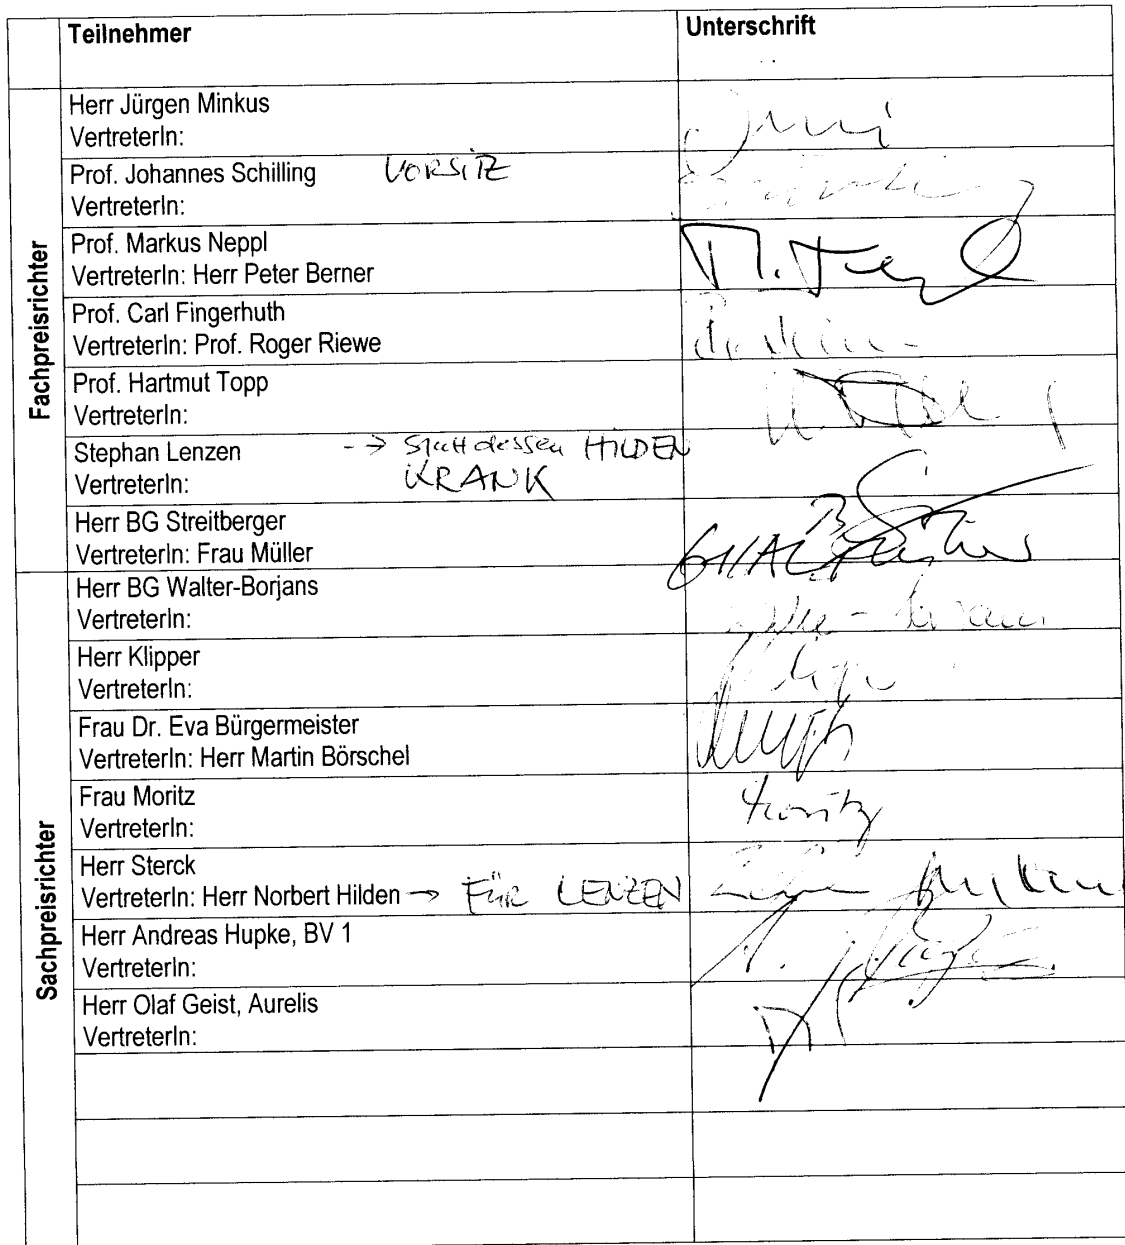 Teilnehmer Unterschrift
Fachpreisrichter
Herr Jürgen Minkus
VertreterIn:
Prof. Johannes Schilling VORSITZ
VertreterIn:
Prof. Markus Neppl
VertreterIn: Herr Peter Berner
Prof. Carl Fingerhuth
VertreterIn: Prof. Roger Riewe
Prof. Hartmut Topp
VertreterIn:
Stephan Lenzen -> Stattdessen HILDEN
VertreterIn: KRANK
Herr BG Streitberger
VertreterIn: Frau Müller
Sachpreisrichter
Herr BG Walter-Borjans
VertreterIn:
Herr Klipper
VertreterIn:
Frau Dr. Eva Bürgermeister
VertreterIn: Herr Martin Börschel
Frau Moritz
VertreterIn: Moritz
Herr Sterck
VertreterIn: Herr Norbert Hilden -> FÜR LENZEN
Herr Andreas Hupke, BV 1
VertreterIn:
Herr Olaf Geist, Aurelis
VertreterIn: